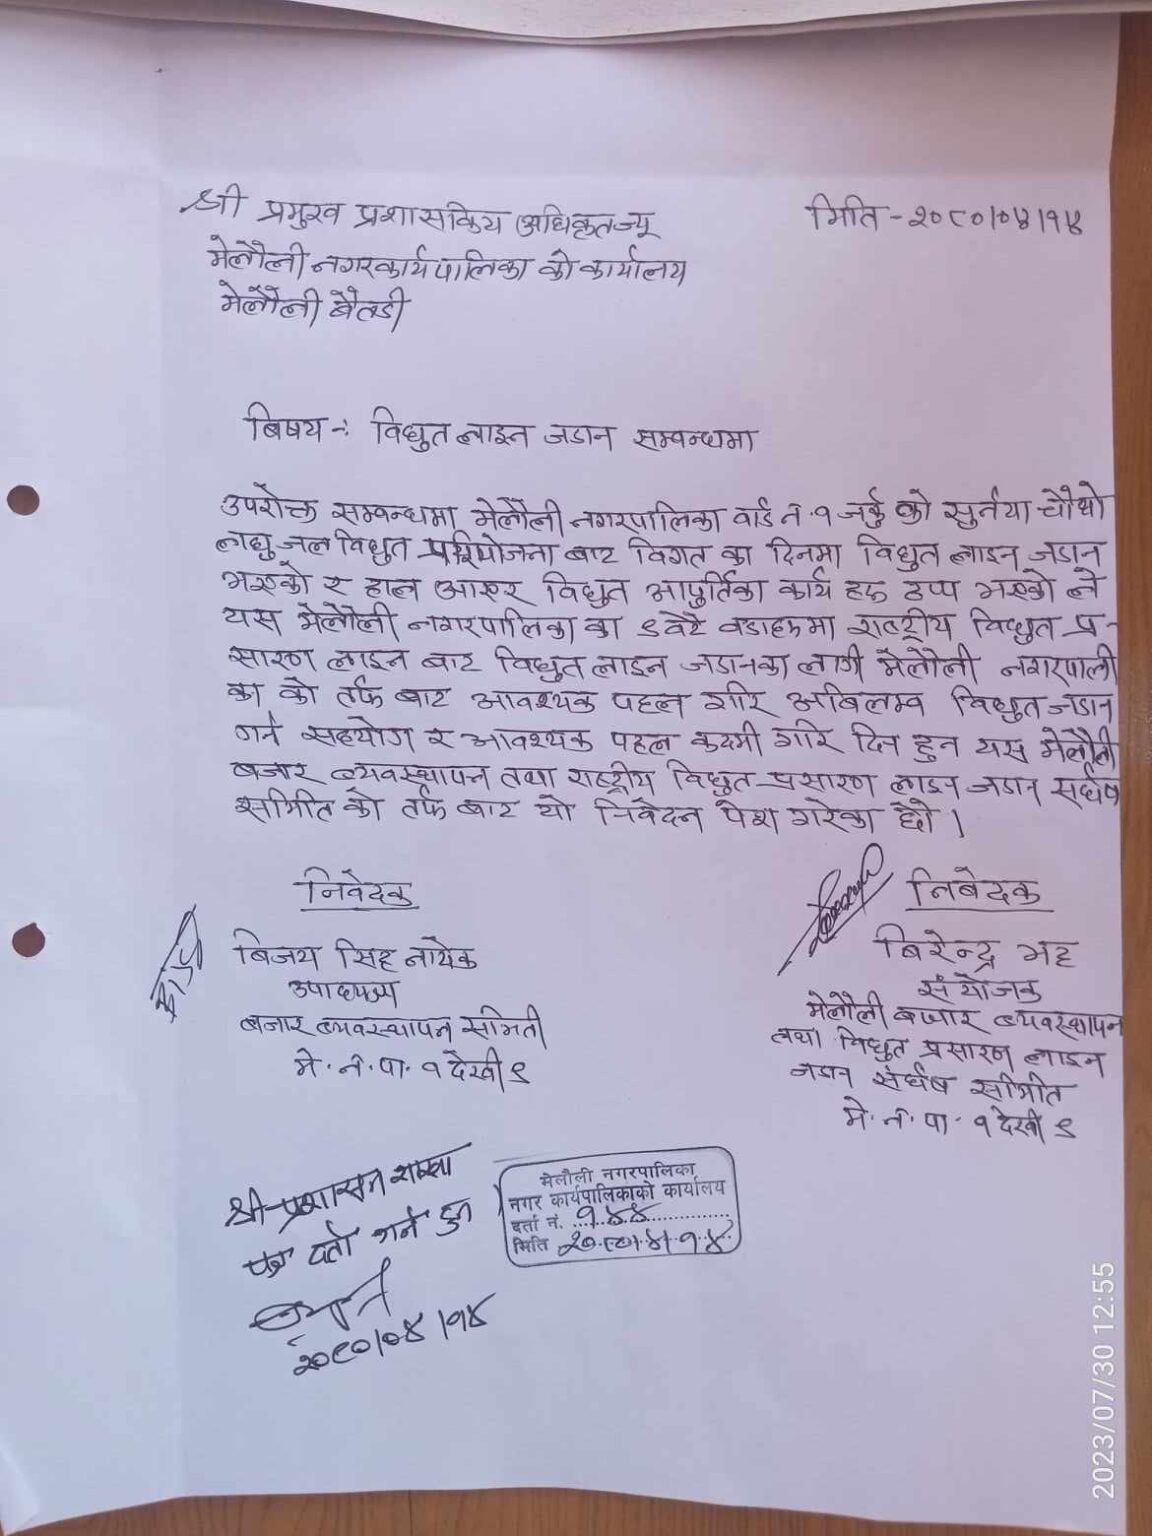 श्री प्रमुख प्रशासकिय अधिकृतज्यू
मिति - २०८०/०४/१४
मेलौली नगरकार्यपालिका को कार्यालय
मेलौली बैतडी
बिषय -: विधुत लाइन जडान सम्वन्धमा
उपरोक्त सम्वन्धमा मेलौली नगरपालिका वार्ड नं १ जर्कु को सुर्नया चौथो
लघु जल विधुत परियोजना बाट विगत का दिनमा विधुत लाइन जडान
भएको र हाल आएर विधुत आपुर्तिका कार्य हरू ठप्प भएको ले
यस मेलौली नगरपालिका का ९ वटै वडाहरूमा राष्ट्रीय विधुत प्र-
सारण लाइन बाट विधुत लाइन जडानका लागी मेलौली नगरपाली
का को तर्फ बाट आवश्यक पहल गरि अबिलम्व विधुत जडान
गर्न सहयोग र आवश्यक पहल कदमी गरि दिन हुन यस मेलौली
बजार व्यवस्थापन तथा राष्ट्रीय विधुत प्रसारण लाइन जडान सर्घष
समिति को तर्फ बाट यो निवेदन पेश गरेका छौ ।
निवेदक
निबेदक
बिजय सिह नायक
बिरेन्द्र भट्ट
उपाध्यक्ष
संयोजक
बजार व्यवस्थापन समिती
मेलौली बजार व्यवस्थापन
तथा विधुत प्रसारण लाइन
मे. न. पा. १ देखी ९
जडान संर्घष समिति
मे. न. पा. १ देखी ९
श्री प्रशासन शाखा
पत्र दर्ता गर्न हुन
२०८०/०४/१४
मेलौली नगरपालिका
नगर कार्यपालिकाको कार्यालय
दर्ता नं. १४४
मिति २०८०।४।१४
2023/07/30 12:55